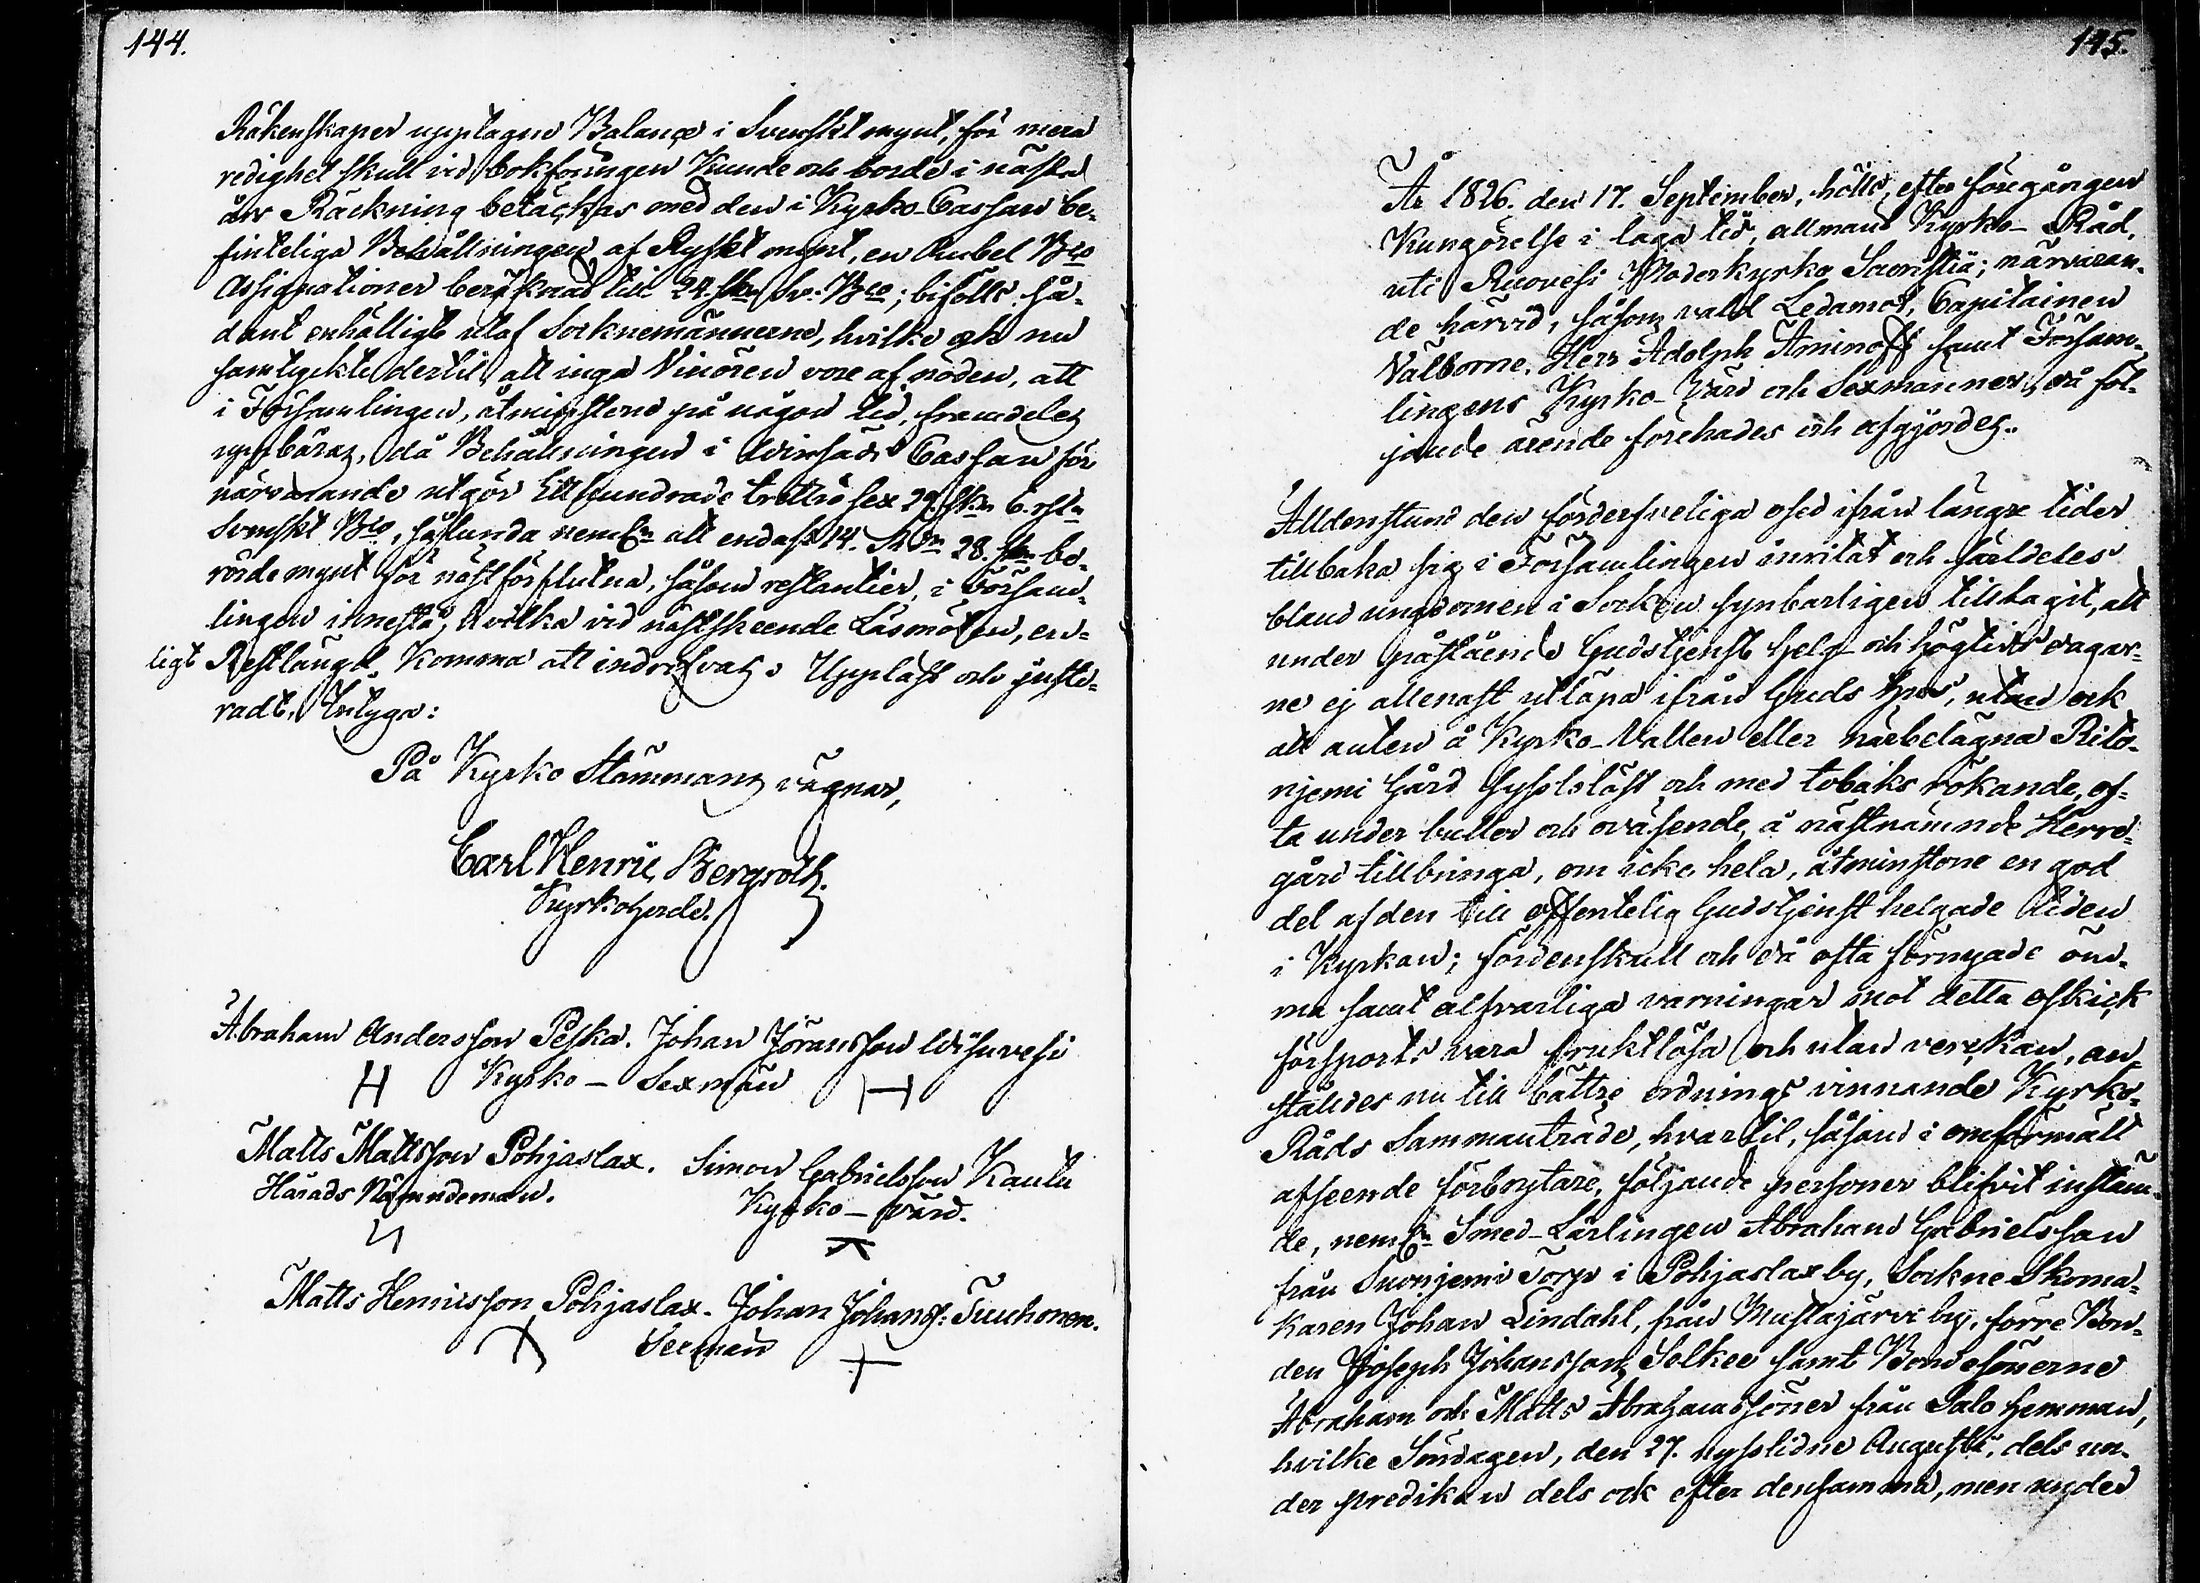 144.
Räkenskaper upptagne Balance i Svenskt mynt, för mera
redighet skull vid bokföringen kunde och borde i nästa
års Räckning betäckas med den i Kyrko-Cassan be-
finteliga Behållningen af Ryskt mynt, en Rubel Bco
Assignationer beräknad till 24. sk. Sv. Bco; biföllo så-
dant enhälligt utaf Socknemännerne, hvilke ock nu
samtyckte dertil, att inga Vinören vore af nöden, att
i Församlingen, åtminstone på någon tid, framdeles
uppbäras, då Behållningen i Vinsäds Cassan för
närvarande utgör Etthundrade trettio sex 29. sk. 6. rst.
Svenskt Bco, sålunda neml:n att endast 14. R:dr 28. sk. be-
rörde mynt för nästförflutna, såsom restantier, i Försam-
lingen innestå, hvilka vid nästskeende Läsmöten, en-
ligt Restlängd komma att indrifvas. Uppläst och juste-
radt, Intyga:
På Kyrko Stämmans vägnar,
Carl Henric Bergroth.
Kyrkoherde.
Abraham Andersson Peska. Johan Jöransson Visuvesi
Kyrko-Sexmän
Matts Mattsson Pohjaslax. Simon Gabrielsson Kautu
Härads Nämndeman. Kyrko-värd.
Matts Henricsson Pohjaslax. Johan Johanss: Tiuhonen.
Sexmän
145.
År 1826. den 17. September, hölls, efter föregången
Kungörelse i laga tid, allmant Kyrko-Råd,
uti Ruovesi Moderkyrko Sacristia; närvaran-
de härvid, såsom vald Ledamot, Capitainen
Välborne, Herr Adolph Aminoff samt Försam-
lingens Kyrko-Värd och Sexmänner, då föl-
jande ärende förehades och afgjordes.
Alldenstund den förderfveliga osed ifrån längre tider
tillbaka sig i Församlingen inritat och särdeles
bland ungdomen i Socken synbarligen tilltagit, att
under påstående Gudstjenst helg- och högtids dagar-
ne ej allenast utlöpa ifrån Guds hus, utan ock
att anten å Kyrko-Vallen eller närbelägna Rito-
njemi Gård sysslolöst och med tobaks rökande, of-
ta under buller och oväsende, å nästnämnde Herre-
gård tillbringa, om icke hela, åtminstone en god
del af den till offentelig Gudstjenst helgade tiden
i Kyrkan; fördenskull och då ofta förnyade öm-
ma samt alfvarliga varningar mot detta oskick
försports vara fruktlösa och utan verkan, an-
stäldes nu till bättre ordnings vinnande Kyrko-
Råds Sammanträde, hvartil, såsom i omförmält
afseende förbrytare, följande personer blifvit instäm-
de, neml:n Smed-Lärlingen Abraham Gabrielsson
från Suonjemi Torp i Pohjaslax by, Sockne Skoma-
karen Johan Lindahl, från Mustajärvi by, förre Bon-
den Joseph Johansson Selkee samt Bondesönerne
Abraham och Matts Abrahamssöner från Salo hemman,
hvilke Söndagen, den 27. nysslidne Augusti, dels un-
der predikan dels ock efter densamma, men under